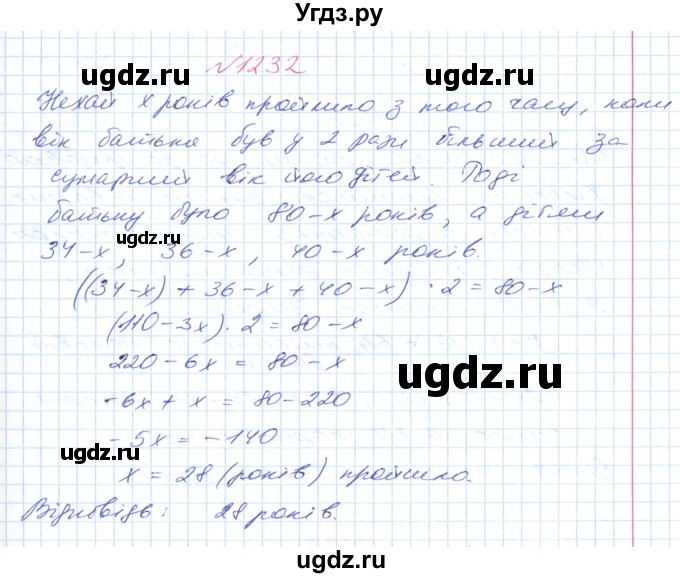 Угдз.ру
ugdz.ru ugdz.ru
№1232
Нехай x років пройшло з того часу, коли
вік батька був у 2 рази більший за
сумарний вік його дітей. Тоді
батьку було 80-x років, а дітям
34-x, 36-x, 40-x років.
ugdz.ru
((34-x) + 36-x + 40-x) · 2 = 80-x
(110-3x) · 2 = 80-x
220-6x = 80-x
ugdz.ru
-6x+x = 80-220
-5x = -140
ugdz.ru
x = 28 (років) пройшло.
Відповідь: 28 років.
ugdz.ru
ugdz.ru